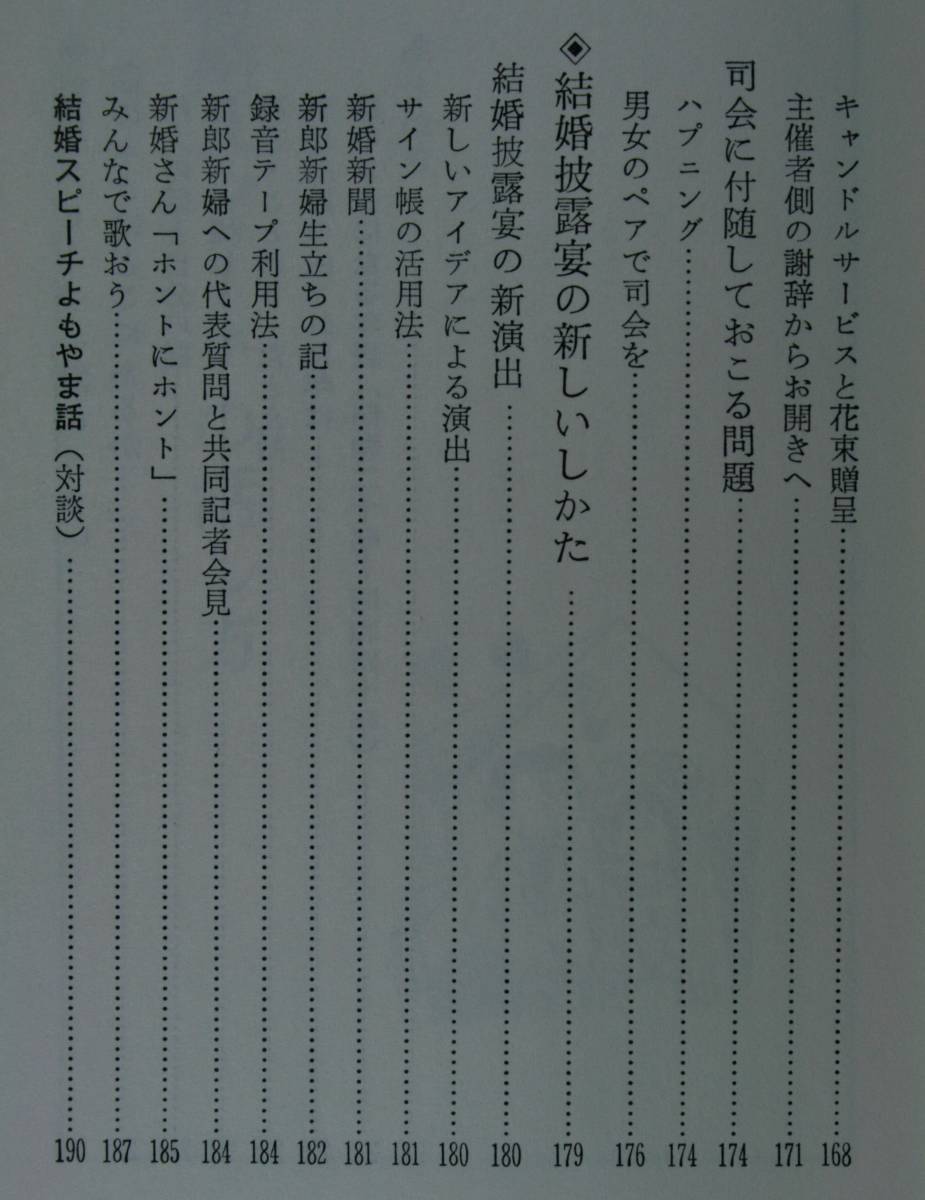 キャンドルサービスと花束贈呈……168
主催者側の謝辞からお開きへ……171
司会に付随しておこる問題……174
ハプニング……174
男女のペアで司会を……176
◈結婚披露宴の新しいしかた……179
結婚披露宴の新演出……180
新しいアイデアによる演出……180
サイン帳の活用法……181
新婚新聞……181
新郎新婦生立ちの記……182
録音テープ利用法……184
新郎新婦への代表質問と共同記者会見……184
新婚さん「ホントにホント」……185
みんなで歌おう……187
結婚スピーチよもやま話（対談）……190